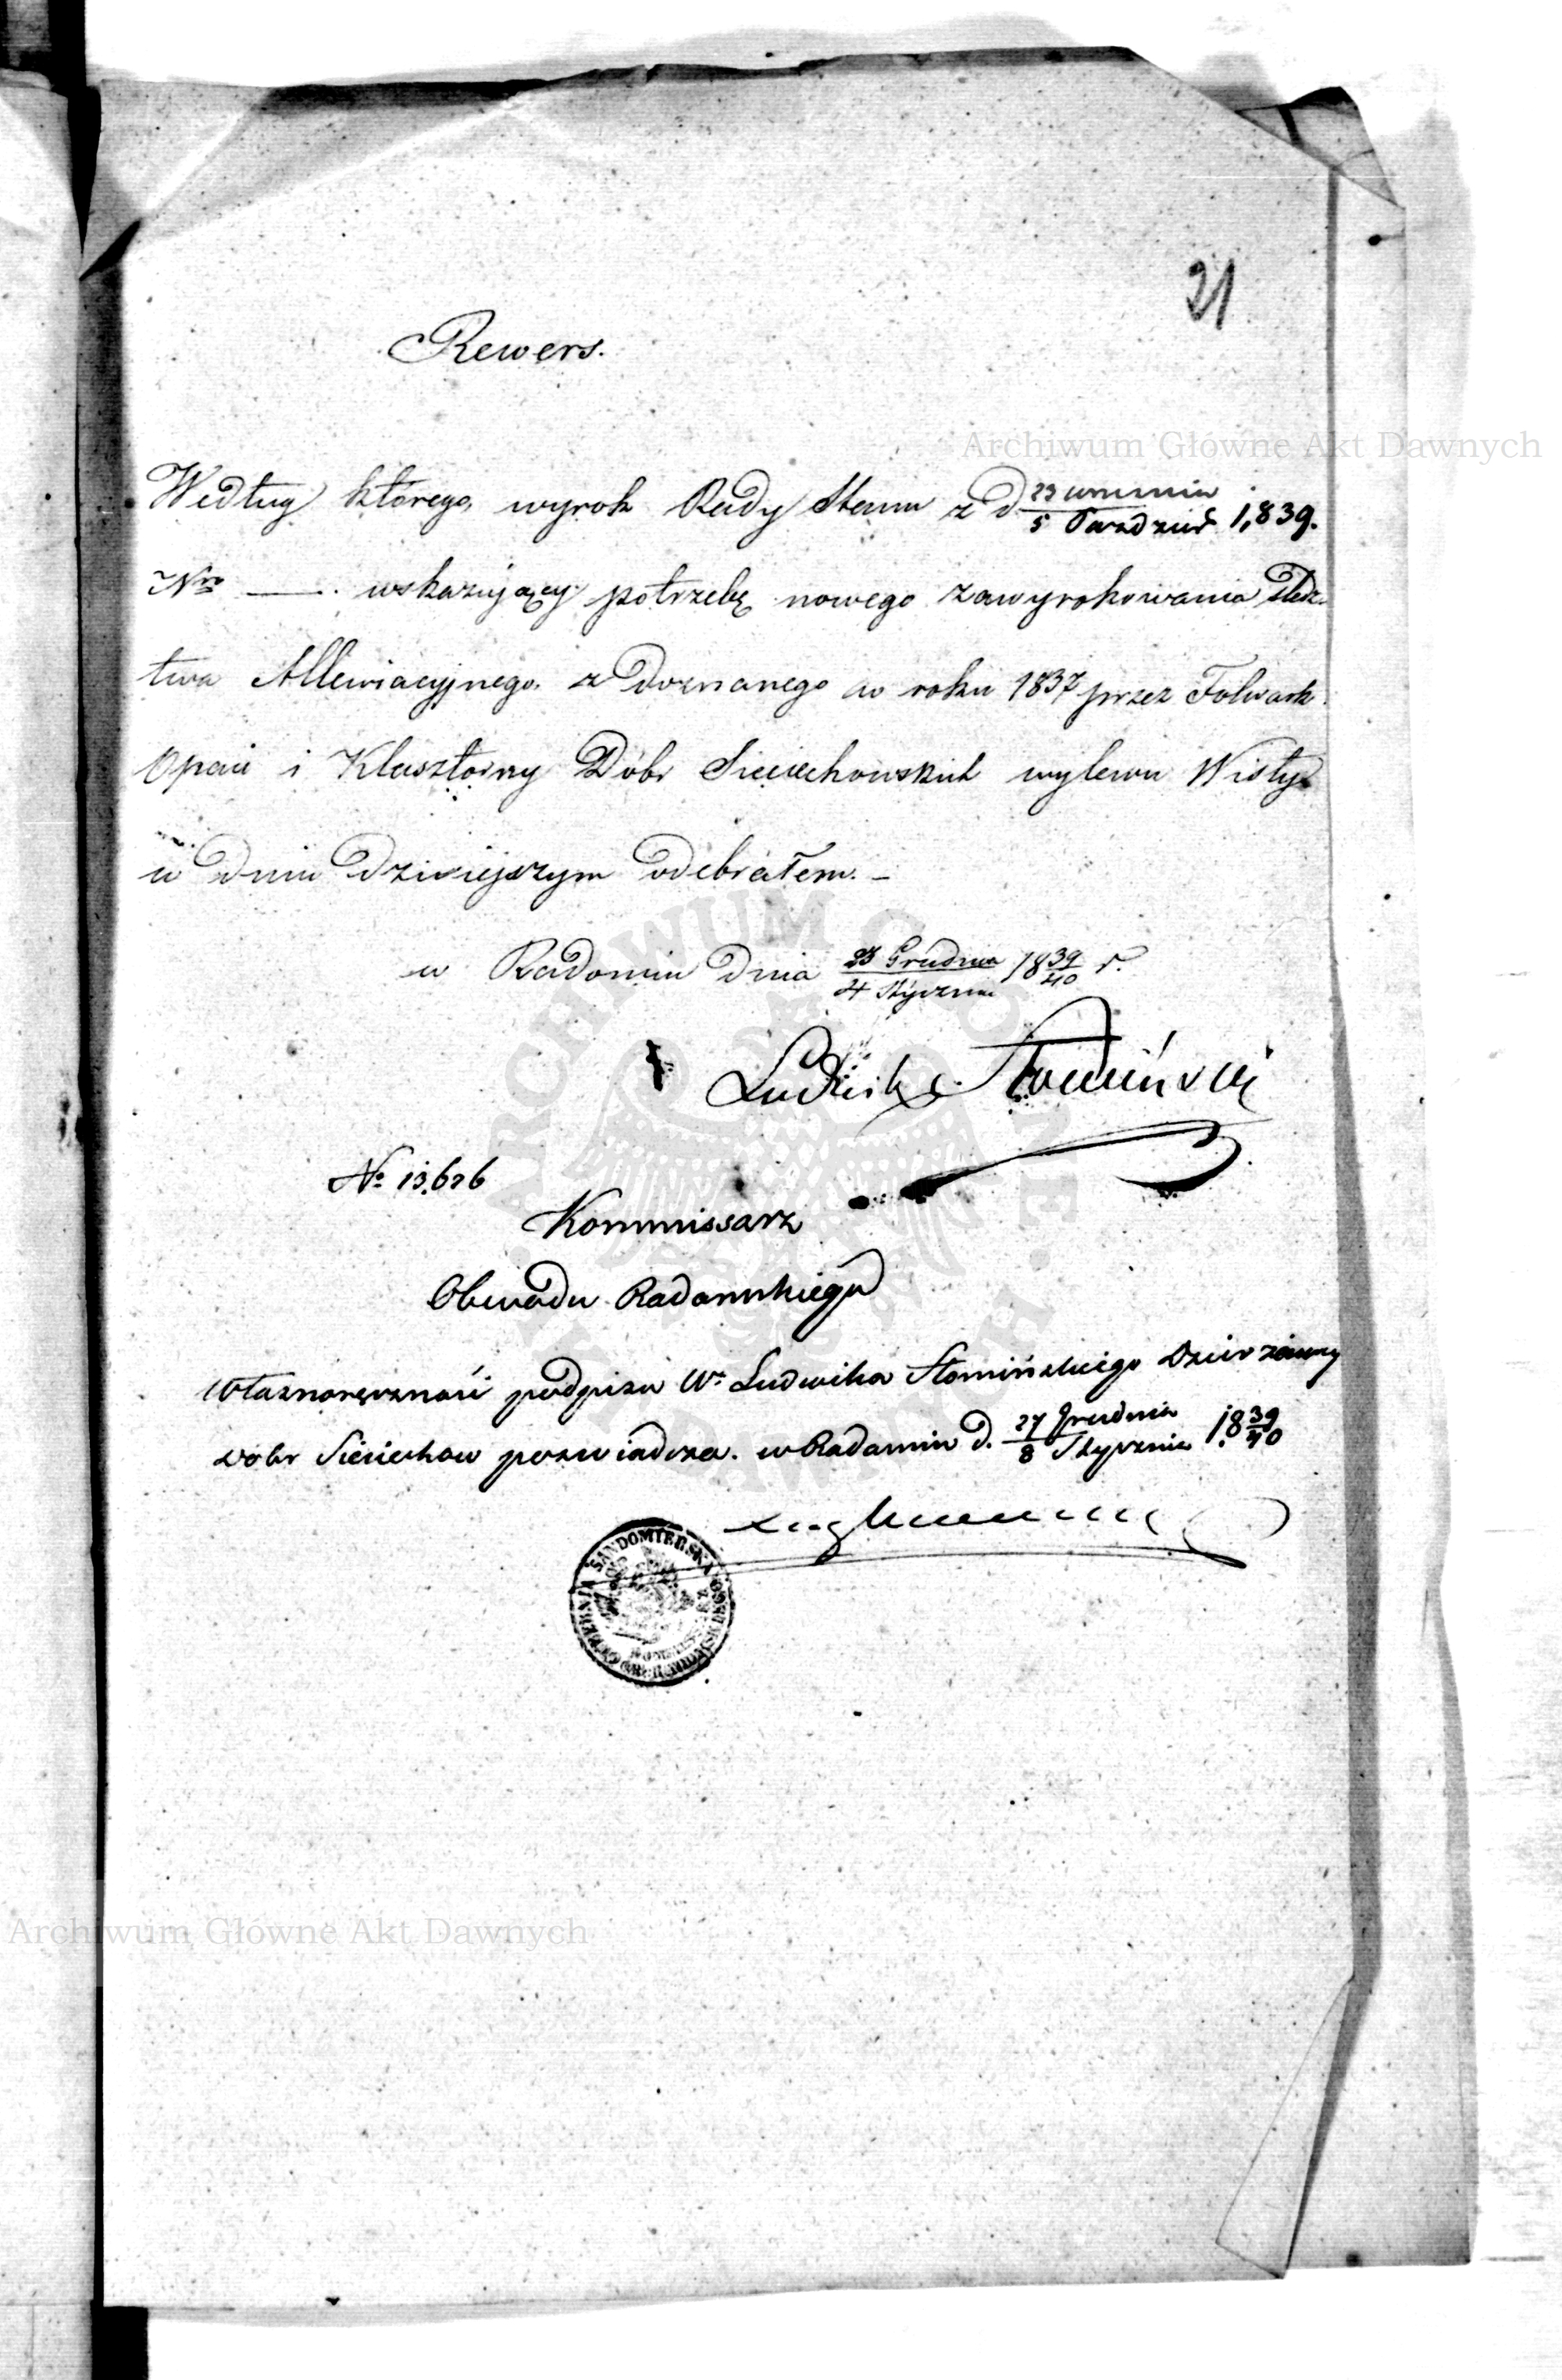 21
Rewers.
Archiwum Główne Akt Dawnych
Według którego, wyrok Rady Stanu z d 23 września / 5 Paździer 1,839.
Nro —. wskazujący potrzebę nowego zawyrokowania Śledz-
twa Allewiacyjnego, z doznanego w roku 1837 przez Folwark
Opacki i Klasztorny Dóbr Sieciechowskich wylewu Wisły
w dniu dzisiejszym odebrałem. —
w Radomiu dnia 23 Grudnia / 4 Stycznia 18 39/40 r.
Ludwik Słomiński
No 13,626
Kommissarz
Obwodu Radomskiego
Własnoręczność podpisu Wo Ludwika Słomińskiego Dzierżawcy
Dóbr Sieciechow poświadcza. w Radomiu d. 27 Grudnia / 8 Stycznia 18 39/40
SANDOMIERSKA
Archiwum Główne Akt Dawnych